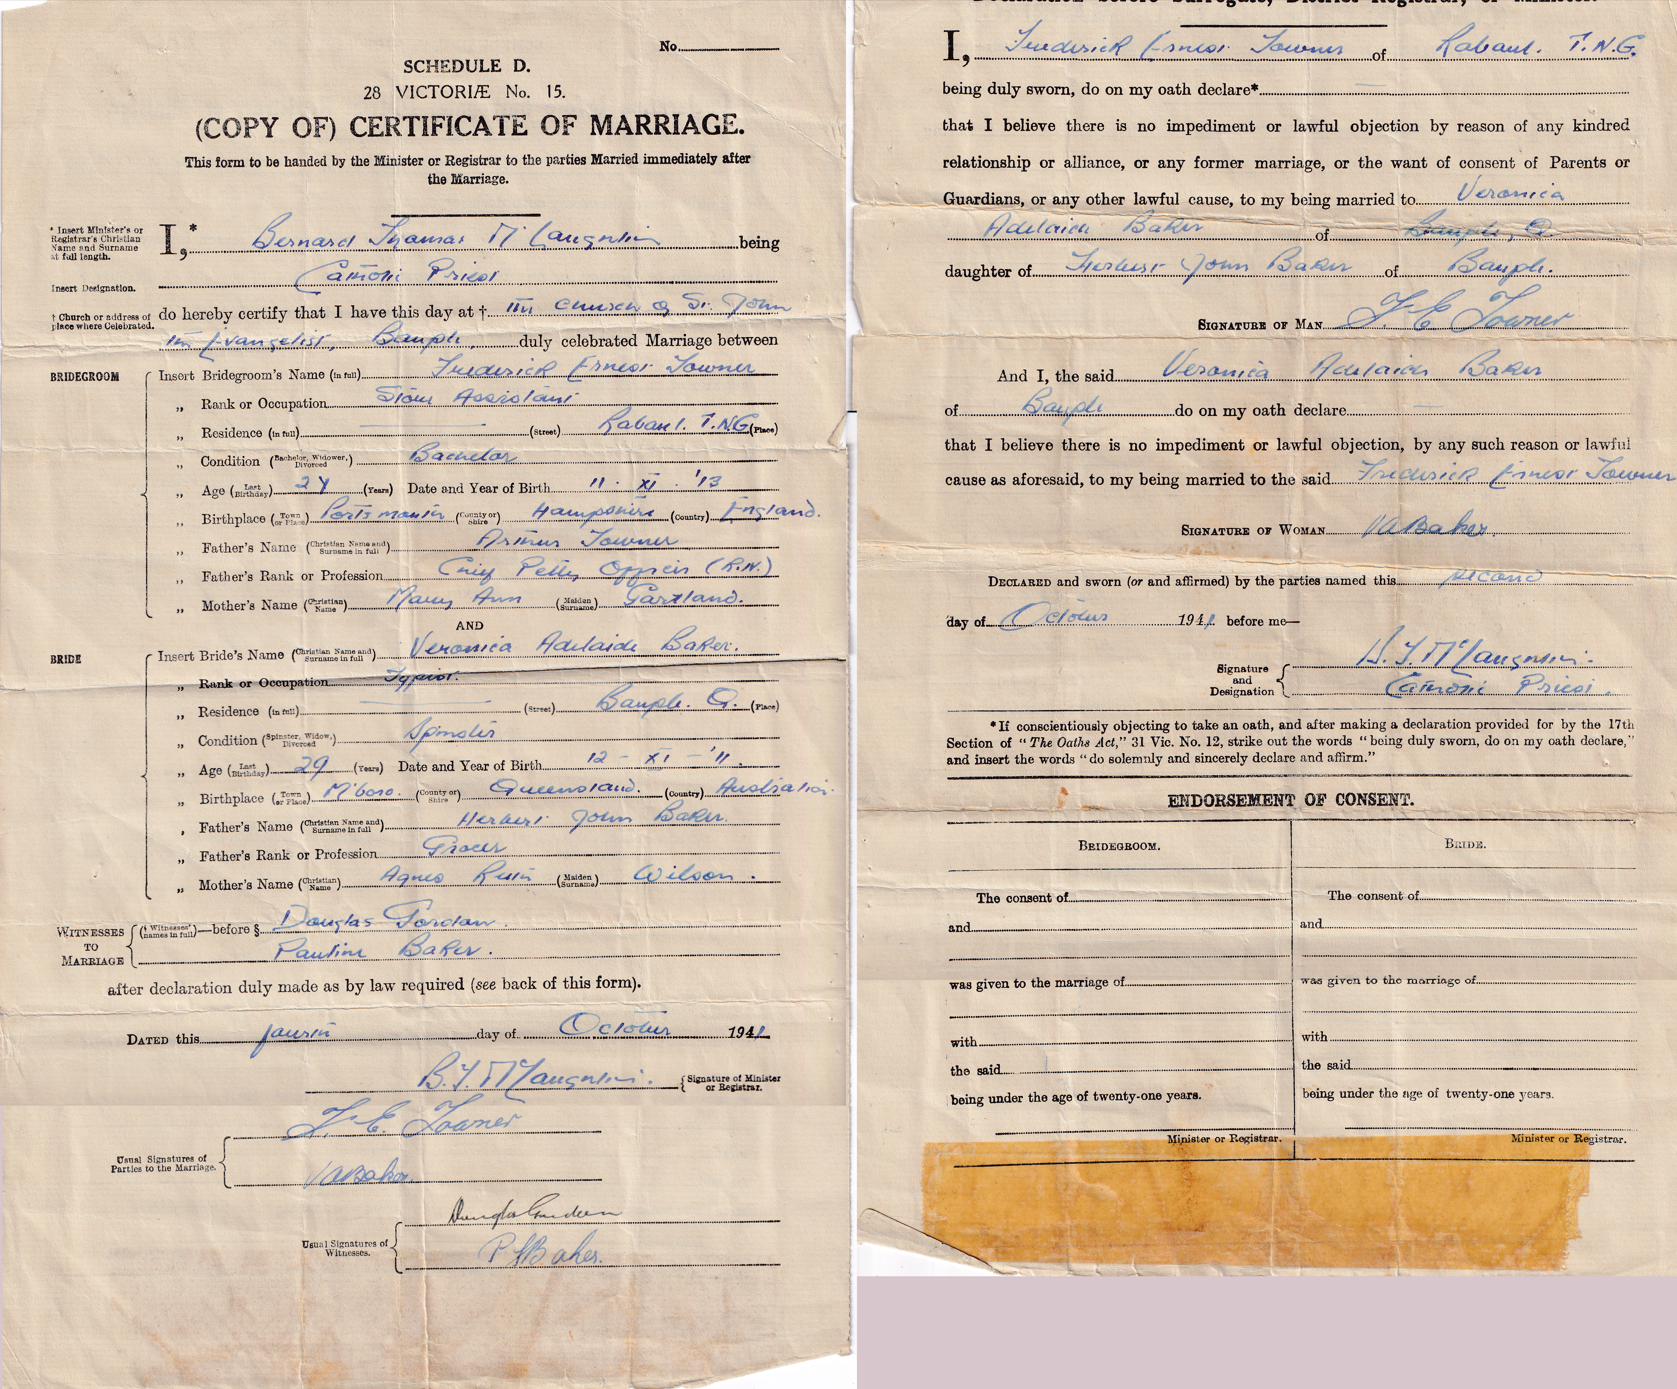 No.
SCHEDULE D.
28 VICTORIÆ No. 15.
(COPY OF) CERTIFICATE OF MARRIAGE.
This form to be handed by the Minister or Registrar to the parties Married immediately after
the Marriage.
* Insert Minister's or Registrar's Christian Name and Surname at full length.
I,* Bernard Thomas McLaughlin being
Insert Designation. Catholic Priest
† Church or address of place where Celebrated. do hereby certify that I have this day at † the church of St. John
the Evangelist, Bauple, duly celebrated Marriage between
BRIDEGROOM Insert Bridegroom's Name (in full) Frederick Ernest Towner
„ Rank or Occupation Store Assistant
„ Residence (in full) (Street) Rabaul. T.N.G. (Place)
„ Condition (Bachelor, Widower, Divorced) Bachelor
„ Age (Last Birthday) 27 (Years) Date and Year of Birth 11 . XI . '13
„ Birthplace (Town or Place) Portsmouth (County or Shire) Hampshire (Country) England.
„ Father's Name (Christian Name and Surname in full) Arthur Towner
„ Father's Rank or Profession Chief Petty Officer (R.N.)
„ Mother's Name (Christian Name) Mary Ann (Maiden Surname) Gartland.
AND
BRIDE Insert Bride's Name (Christian Name and Surname in full) Veronica Adelaide Baker.
„ Rank or Occupation Typist.
„ Residence (in full) (Street) Bauple. Q. (Place)
„ Condition (Spinster, Widow, Divorced) Spinster
„ Age (Last Birthday) 29 (Years) Date and Year of Birth 12 - XI - '11.
„ Birthplace (Town or Place) M'boro. (County or Shire) Queensland. (Country) Australia.
„ Father's Name (Christian Name and Surname in full) Herbert John Baker.
„ Father's Rank or Profession Grocer
„ Mother's Name (Christian Name) Agnes Ruth (Maiden Surname) Wilson.
WITNESSES TO MARRIAGE (§ Witnesses' names in full)—before §. Douglas Gordon.
Pauline Baker.
after declaration duly made as by law required (see back of this form).
DATED this fourth day of October 1941
B.T. McLaughlin. Signature of Minister or Registrar.
F. E. Towner
Usual Signatures of Parties to the Marriage.
VABaker
Douglas Gordon
Usual Signatures of Witnesses.
Baker.
Declaration before Surrogate, District Registrar, or Minister.
I, Frederick Ernest Towner of Rabaul. T.N.G.
being duly sworn, do on my oath declare*
that I believe there is no impediment or lawful objection by reason of any kindred
relationship or alliance, or any former marriage, or the want of consent of Parents or
Guardians, or any other lawful cause, to my being married to Veronica
Adelaide Baker of Bauple, Q.
daughter of Herbert John Baker of Bauple.
SIGNATURE OF MAN F. E. Towner
And I, the said Veronica Adelaide Baker
of Bauple do on my oath declare
that I believe there is no impediment or lawful objection, by any such reason or lawful
cause as aforesaid, to my being married to the said Frederick Ernest Towner
SIGNATURE OF WOMAN VABaker.
DECLARED and sworn (or and affirmed) by the parties named this second
day of October 1941 before me—
Signature and Designation B.T. McLaughlin.
Catholic Priest.
*If conscientiously objecting to take an oath, and after making a declaration provided for by the 17th
Section of "The Oaths Act," 31 Vic. No. 12, strike out the words "being duly sworn, do on my oath declare,"
and insert the words "do solemnly and sincerely declare and affirm."
ENDORSEMENT OF CONSENT.
BRIDEGROOM. BRIDE.
The consent of The consent of
and and
was given to the marriage of was given to the marriage of
with with
the said the said
being under the age of twenty-one years. being under the age of twenty-one years.
Minister or Registrar. Minister or Registrar.